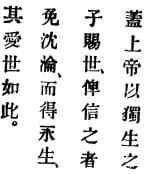 蓋上帝以獨生之
子賜世、俾信之者
免沈淪、而得永生、
其愛世如此。